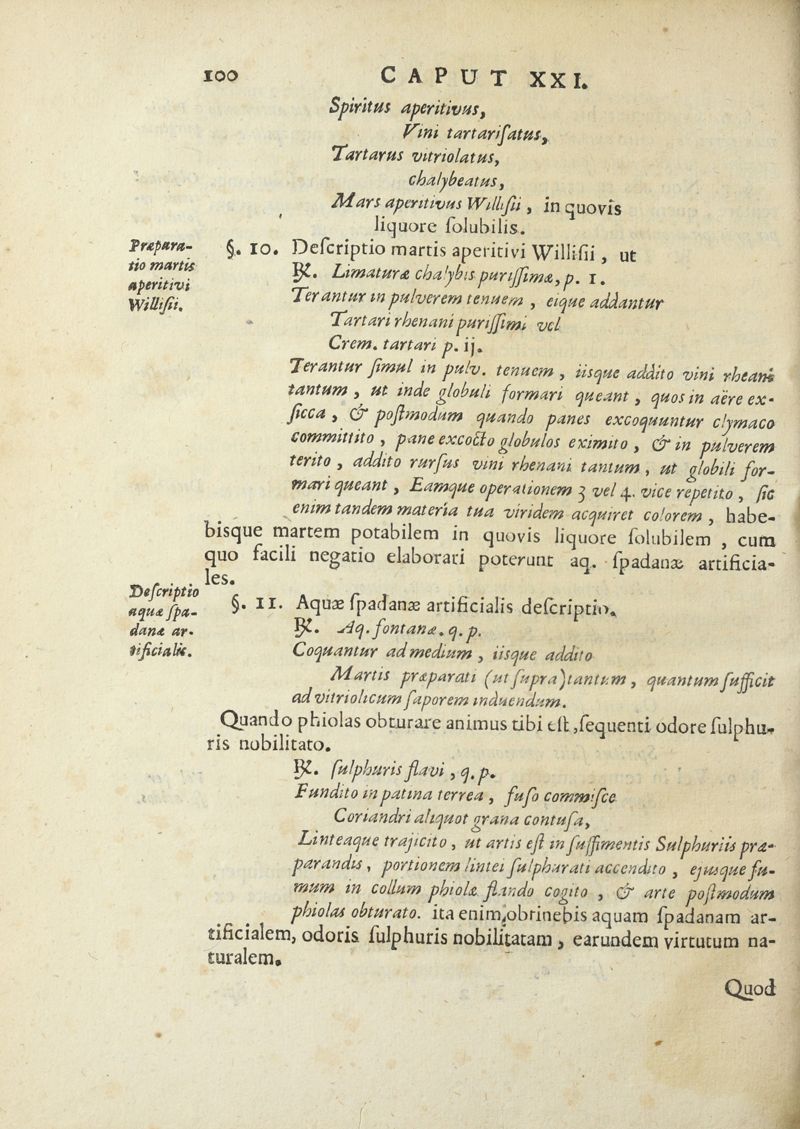 100 CAPUT XXI.
Spiritus aperitivus,
Vini tartarisatus,
Tartarus vitriolatus,
chalybeatus,
Mars aperitivus Willisii, in quovis
liquore solubilis.
Præpara-
tio martis
aperitivi
Willisii.
§. 10. Descriptio martis aperitivi Willisii, ut
℞. Limaturæ chalybis purissimæ, p. 1.
Terantur in pulverem tenuem, eique addantur
Tartari rhenani purissimi vel
Crem. tartari p. ij.
Terantur simul in pulv. tenuem, iisque addito vini rhenani
tantum, ut inde globuli formari queant, quos in aëre ex-
sicca, & postmodum quando panes excoquuntur clymaco
committito, pane excocto globulos eximito, & in pulverem
terito, addito rursus vini rhenani tantum, ut globili for-
mari queant, Eamque operationem 3 vel 4. vice repetito, sic
enim tandem materia tua viridem acquiret colorem, habe-
bisque martem potabilem in quovis liquore solubilem, cum
quo facili negatio elaborari poterunt aq. spadanæ artificia-
les.
Descriptio
aquæ spa-
danæ ar-
tificialis.
§. 11. Aquæ spadanæ artificialis descriptio.
℞. Aq. fontanæ. q. p.
Coquantur ad medium, iisque addito
Martis præparati (ut supra) tantum, quantum sufficit
ad vitriolicum saporem inducendum.
Quando phiolas obturare animus tibi est, sequenti odore sulphu-
ris nobilitato.
℞. sulphuris flavi, q. p.
Fundito in patina terrea, fuso commisce
Coriandri aliquot grana contusa,
Linteaque trajicito, ut artis est in suffimentis Sulphuriis præ-
parandis, portionem lintei sulphurati accendito, ejusque fu-
mum in collum phiolæ flando cogito, & arte postmodum
phiolas obturato. ita enim obtinebis aquam spadanam ar-
tificialem, odoris sulphuris nobilitatam, earundem virtutum na-
turalem.
Quod